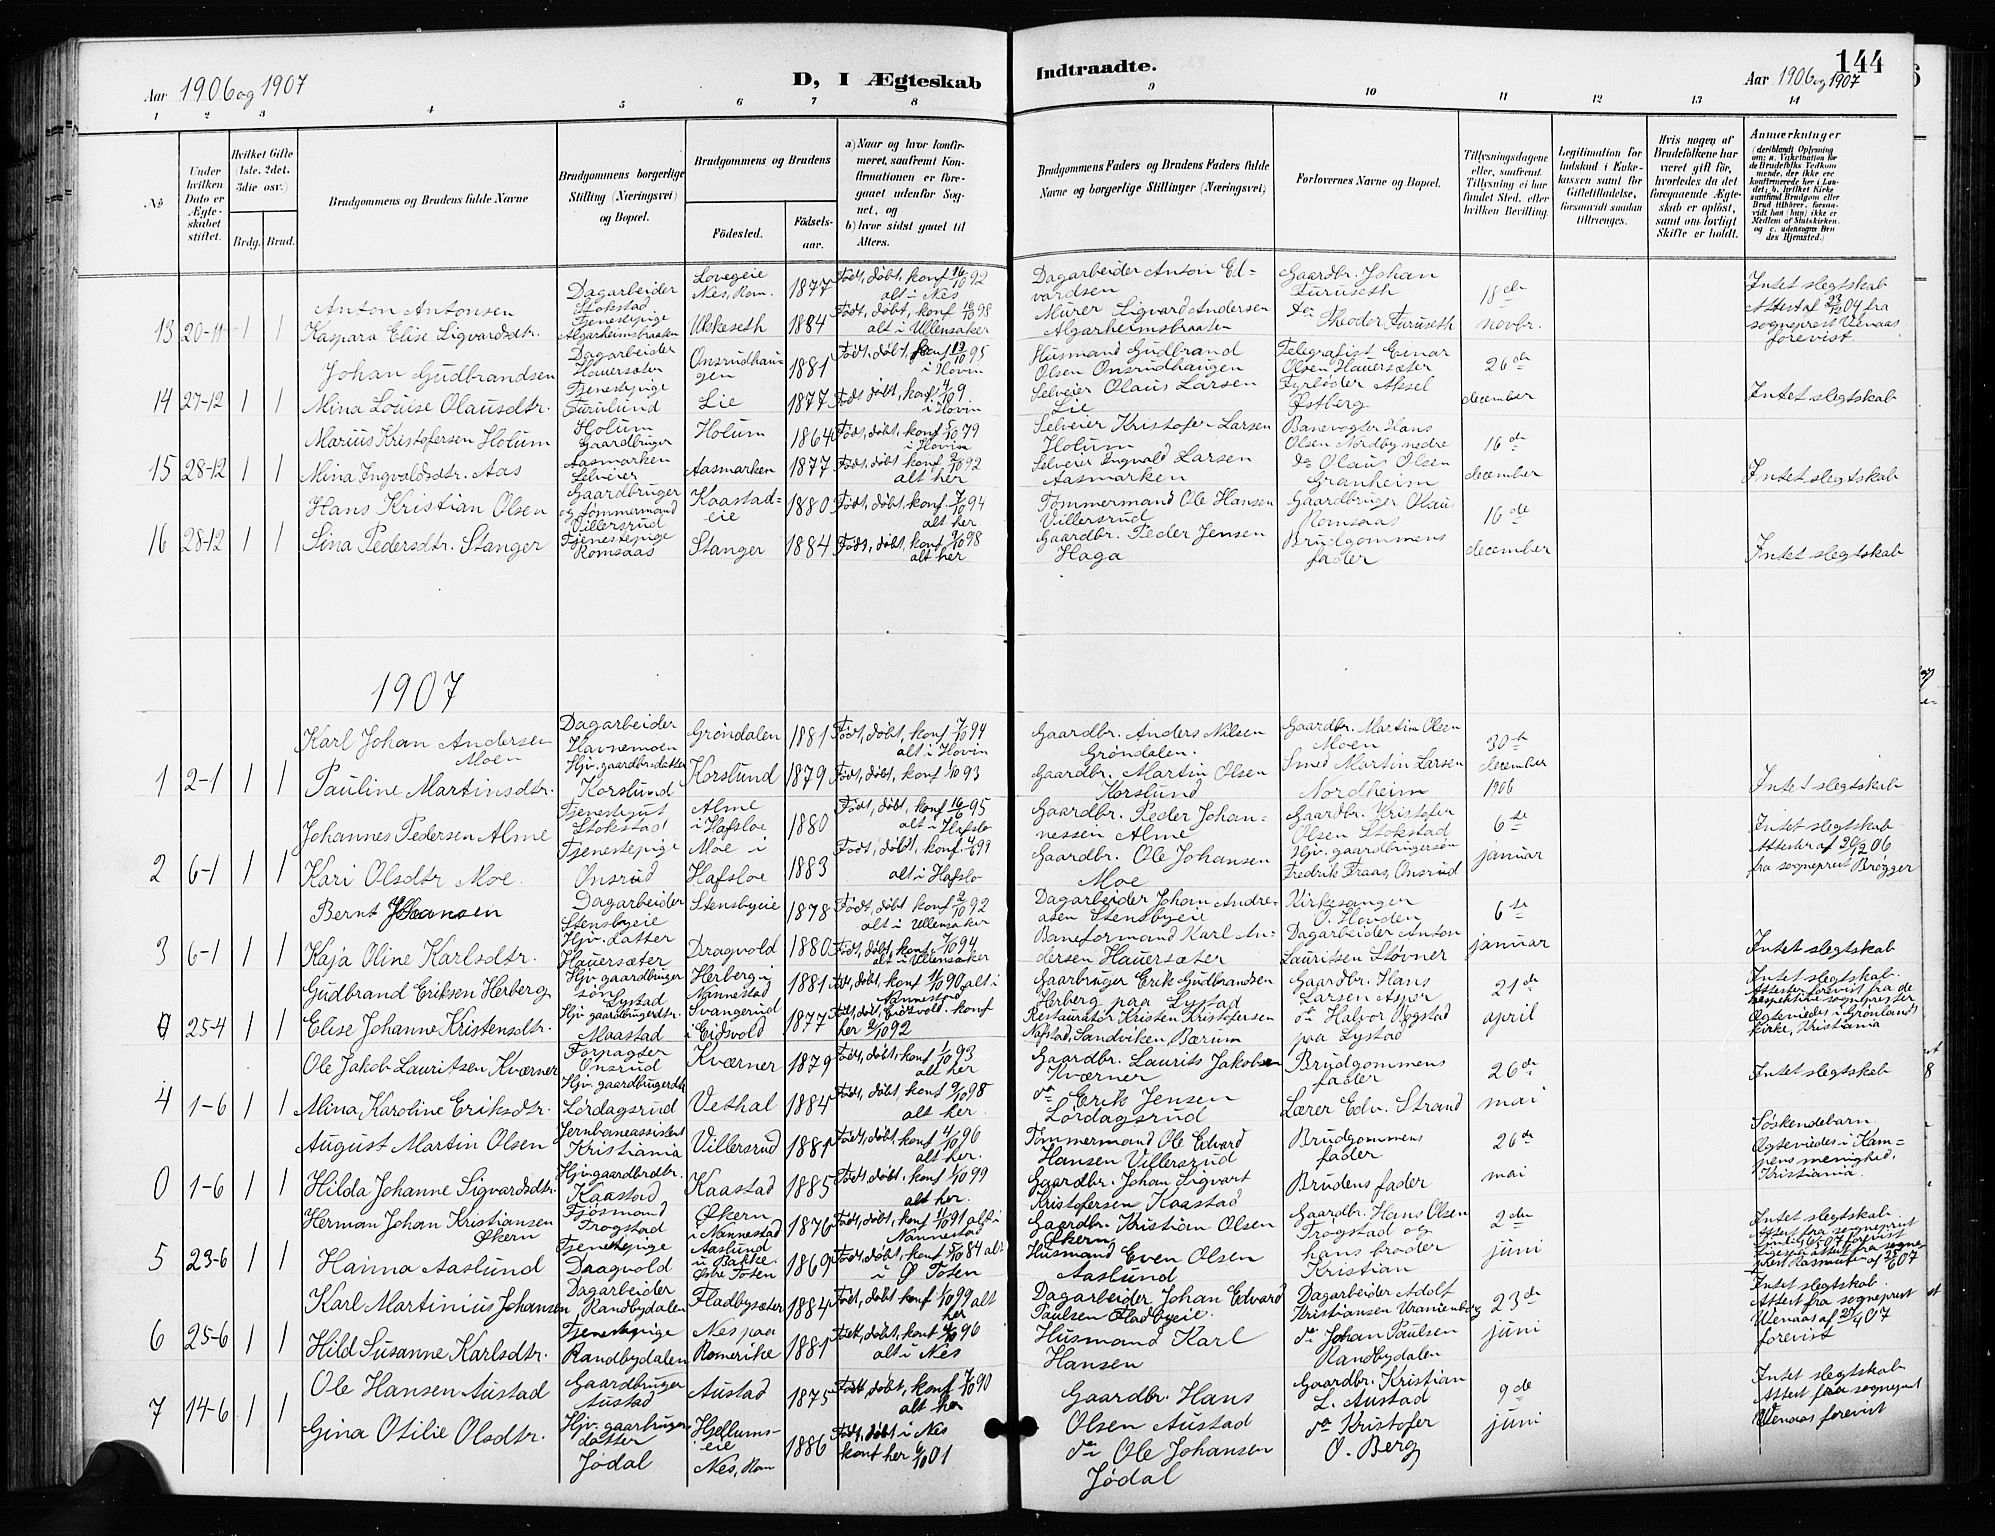 Aar 1906 og 1907
D, I Ægteskab
Indtraadte.
144
Aar 1906 og 1907
1 2 3 4 5 6 7 8 9 10 11 12 13 14
No
Under hvilken Dato er Ægteskabet stiftet.
Hvilket Gifte (1ste. 2det. 3die osv.)
Brdg. Brud.
Brudgommens og Brudens fulde Navne
Brudgommens borgerlige Stilling (Næringsvei) og Bopæl.
Brudgommens og Brudens
Fødested.
Fødsels-aar.
a) Naar og hvor konfirmeret, saafremt Konfirmationen er foregaaet udenfor Sognet, og
b) hvor sidst gaaet til Alters.
Brudgommens Faders og Brudens Faders fulde Navne og borgerlige Stillinger (Næringsvei)
Forlovernes Navne og Bopæl.
Tillysningsdagene eller, saafremt Tillysning ei har fundet Sted. efter hvilken Bevilling.
Legitimation for Indskud i Enkekassen samt for Giftetilladelse, forsaavidt saadan tiltrænges.
Hvis nogen af Brudefolkene har været gift før, hvorledes da det foregaaende Ægteskab er opløst, samt om lovligt Skifte er holdt.
Anmærkninger
Anton Antonsen
Dagarbeider Stokstad
Lovegeie Nes, Rom.
1877
Født, døbt, konf 16/10 92 alt i Nes
Dagarbeider Anton Edvardsen
Gaardbr. Johan Furuseth
18de novbr.
Intet slegtskab
Attest af 23/10 04 fra sogneprest Utenaas forevist
13 20-11 1 1
Kaspara Elise Sigvardsdtr.
Tjenestepige Algarheimsbraaten
Ukkeseth
1884
Født, døbt, konf 16/10 98 alt i Ullensaker
Murer Sigvard Andersen Algarheimsbraaten
do Theodor Furuseth
Johan Gudbrandsen
Dagarbeider Hauersæter
Onsrudhaugen
1881
Født, døbt, konf 13/10 95 i Hovin
Husmand Gudbrand Olsen Onsrudhaugen
Telegrafist Einar Olsen Hauersæter
26de december
14 27-12 1 1
Mina Louise Olausdtr.
Tjenestepige Furulund
Lie
1877
Født, døbt, konf. i Hovin
Selveier Olaus Larsen Lie
Fyrbøder Aksel Østberg
Intet slegtskab
Marius Kristofersen Holum
Holum Gaardbruger
Holum
1864
Født, døbt, konf 5/10 79 i Hovin
Selveier Kristofer Larsen Holum
Banevogter Hans Olsen Nordby nedre
16de december
15 28-12 1 1
Mina Ingvaldsdtr. Aas
Aasmarken Selveier
Aasmarken
1877
Født, døbt, konf 2/10 92 alt her
Selveier Ingvald Larsen Aasmarken
do Olaus Olsen Granheim
Intet slegtskab
Hans Kristian Olsen
Gaardbruger og tømmermand Villersrud
Kaastadeie
1880
Født, døbt, konf 7/10 94 alt her.
Tømmermand Ole Hansen Villersrud
Gaardbruger Olaus Romsaas
16de december
16 28-12 1 1
Sina Pedersdtr. Stanger
Tjenestepige Romsaas
Stanger
1884
Født, døbt, konf 9/10 98 alt her
Gaardbr. Peder Jensen Haga
Brudgommens fader
Intet slegtskab
1907
Karl Johan Andersen Moen
Dagarbeider Havnemoen
Grøndalen
1881
Født, døbt, konf 7/10 94 alt i Hovin
Gaardbr. Anders Nilsen Grøndalen.
Gaardbr. Martin Olsen Moen
30te december 1906
1 2-1 1 1
Pauline Martinsdtr.
Hjv. gaardbr. datter Korslund
Korslund
1879
Født, døbt, konf 1/10 93
Gaardbr. Martin Olsen Korslund
Smed Martin Larsen Nordheim
Intet slegtskab
Johannes Pedersen Alme
Tjenestegut Stokstad
Alme i Hafsloe
1880
Født, døbt, konf 16/6 95 alt i Hafslo
Gaardbr. Peder Johannessen Alme
Gaardbr. Kristofer Olsen Stokstad
6te januar
Intet slegtskab
Attester af 20/12 06 fra sogneprest Brøgger
2 6-1 1 1
Kari Olsdtr Moe.
Tjenestepige Onsrud
Moe i Hafsloe
1883
Født, døbt, konf. 99 alt i Hafslo
Gaardbr. Ole Johansen Moe
Hjv. gaardbrugersøn Fredrik Fraas, Onsrud
Bernt Johansen
Dagarbeider Stensbyeie
Stensbyeie
1878
Født, døbt, konf 2/10 92 alt i Ullensaker
Dagarbeider Johan Andreasen Stensbyeie
Kirkesanger O. Hovden
6te januar
3 6-1 1 1
Kaja Oline Karlsdtr.
Hjv. datter Hauersæter
Dragvold
1880
Født, døbt, konf 7/10 94 alt i Ullensaker
Baneformand Karl Andersen Hauersæter
Dagarbeider Anton Lauritsen Støvner
Intet slegtskab
Gudbrand Eriksen Herberg
Hjv. gaardbruger søn Lystad
Herberg i Nannestad
1881
Født, døbt, konf 11/10 90, alt i Nannestad
Gaarbruger Erik Gudbrandsen Herberg paa Lystad
Gaardbr. Hans Larsen Asper
21de april
Intet slegtskab.
Attester forevist fra de respektive sogneprester
Ægteviedes i Grønlands kirke, Kristiania
0 25-4 1 1
Elise Johanne Kristensdtr.
Hjv. gaardbrugerdtr. Maastad
Svangerud i Eidsvold
1877
Født, døbt, Eidsvold. konf her 2/10 92
Restauratør Kristen Kristofersen Nafstad, Sandviken Bærum
do Halvor Rogstad paa Lystad
Ole Jakob Lauritsen Kværner
Forpagter Onsrud
Kværner
1879
Født, døbt, konf 1/10 93 alt her
Gaardbr. Laurits Jakobsen Kværner
Brudgommens fader
26de mai
Intet slegtskab
4 1-6 1 1
Mina Karoline Eriksdtr.
Hjv. gaardbrugerdtr. Lørdagsrud
Vethal
1884
Født, døbt, konf 9/10 98 alt her.
do Erik Jensen Lørdagsrud
Lærer Edv. Strand
August Martin Olsen
Jernbaneassistent Kristiania
Villersrud
1881
Født, døbt, konf 4/10 96 alt her.
Tømmermand Ole Edvard Hansen Villersrud
Brudgommens fader
26de mai
Søskendebarn.
Ægteviedes i Kampens menighed, Kristiania.
0 1-6 1 1
Hilda Johanne Sigvardsdtr.
Hjv. gaardbrdtr. Kaastad
Kaastad
1885
Født, døbt, konf 1/10 99 alt her.
Gaardbr. Johan Sigvart Kristofersen Kaastad
Brudens fader
Herman Johan Kristiansen Økern
Fjøsmand Trogstad
Økern i Nannestad
1876
Født, døbt, konf 11/10 91 alt i Nannestad
Gaardbr. Kristian Olsen Økern
Gaardbr. Hans Olsen Trogstad og hans broder Kristian
2den juni
Intet slegtskab.
5 23-6 1 1
Hanna Aaslund
Tjenestepige Dragvold
Aaslund u Bakke. Østre Toten
1869
Født, døbt, konf 5/10 84 alt i Ø Toten
Husmand Even Olsen Aaslund
Karl Martinius Johansen
Dagarbeider Randbydalen
Fladbysæter
1884
Født, døbt konf 1/10 99 alt her
Dagarbeider Johan Edvard Paulsen Fladbyeie.
Dagarbeider Adolf Kristiansen Uranienborg
23de juni
Intet slegtskab.
Attest fra sogneprest Utenaas af 27/4 07 forevist
6 25-6 1 1
Hild Susanne Karlsdtr.
Tjenestepige Randbydalen
Nes paa Romerike
1881
Født, døbt, konf 4/10 96 alt i Nes
Husmand Karl Hansen
do Johan Paulsen Randbydalen
Ole Hansen Austad
Gaardbruger Austad
Austad
1875
Født, døbt, konf 7/10 90 alt her
Gaardbr. Hans Olsen Austad
Gaardbr. Kristian L. Austad
9de juni
Intet slegtskab
Attest fra sogneprest Utenaas forevist
7 14-6 1 1
Gina Otilie Olsdtr.
Hjv. gaarbruger datter Jødal
Hjellumseie Nes, Rom
1886
Født, døbt i Nes konf her 6/10 01
do Ole Johansen Jødal
do Kristofer O. Berg